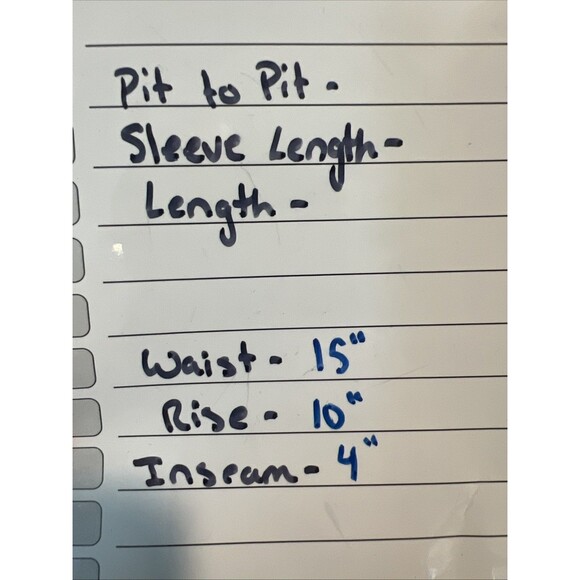 Pit to Pit -
Sleeve Length -
Length -
Waist - 15"
Rise - 10"
Inseam - 4"